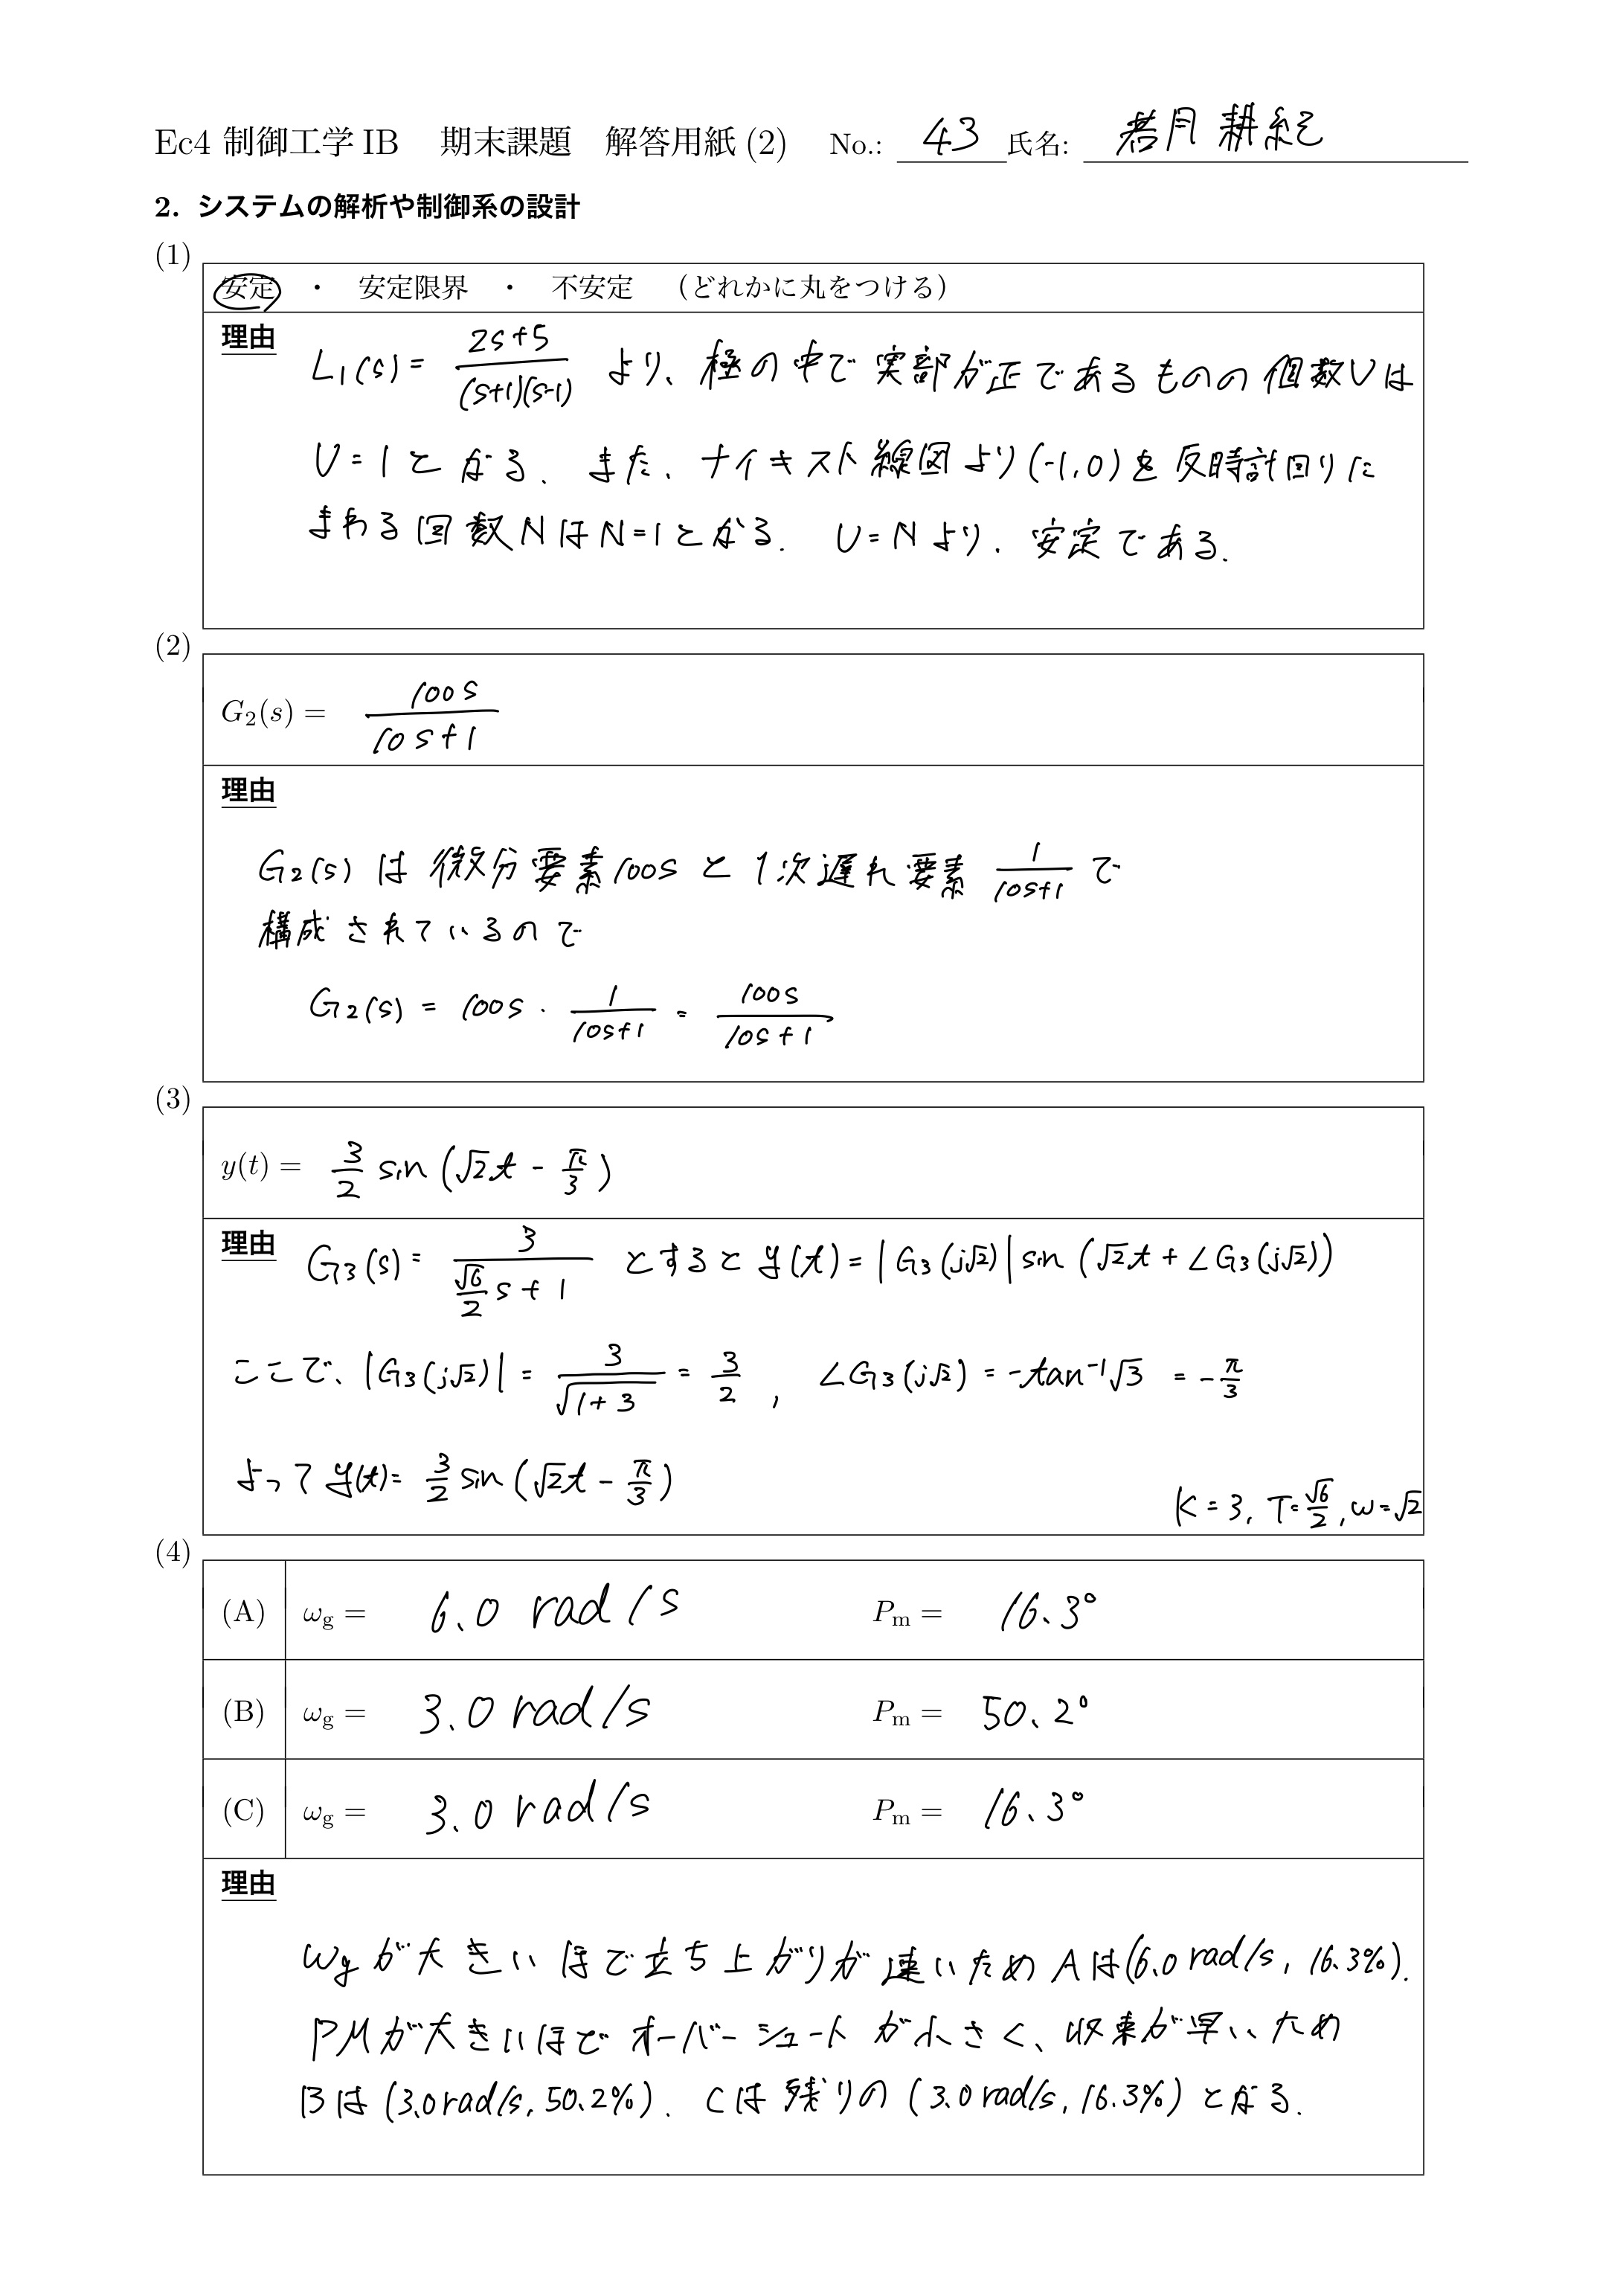 Ec4 制御工学 IB 期末課題 解答用紙 (2) No.: 43 氏名: 若月 耕紀
2. システムの解析や制御系の設計
(1)
安定 ・ 安定限界 ・ 不安定 (どれかに丸をつける)
理由
L₁(s) = (2s+5)/((s+1)(s-1)) より、極の中で実部が正であるものの個数Uは
U=1となる. また、ナイキスト線図より(-1,0)を反時計回りに
まわる回数NはN=1となる. U=Nより、安定である.
(2)
G₂(s) = 100s/(10s+1)
理由
G₂(s) は 微分要素100s と 1次遅れ要素 1/(10s+1) で
構成されているので
G₂(s) = 100s · 1/(10s+1) = 100s/(10s+1)
(3)
y(t) = 3/2 sin (√2t - π/3)
理由
G₃(s) = 3/(√6/2 s + 1) とすると y(t) = |G₃(j√2)| sin (√2t + ∠G₃(j√2))
ここで、|G₃(j√2)| = 3/√(1+3) = 3/2 , ∠G₃(j√2) = -tan⁻¹√3 = -π/3
よって y(t) = 3/2 sin (√2t - π/3)
K = 3, T = √6/2, ω = √2
(4)
(A) ωg = 6.0 rad/s Pm = 16.3°
(B) ωg = 3.0 rad/s Pm = 50.2°
(C) ωg = 3.0 rad/s Pm = 16.3°
理由
ωg が大きいほで立ち上がりが速いため Aは(6.0 rad/s, 16.3%).
PMが大きいほどオーバーシュートが小さく、収束が早いため
Bは (3.0 rad/s, 50.2%). Cは残りの (3.0 rad/s, 16.3%) となる.